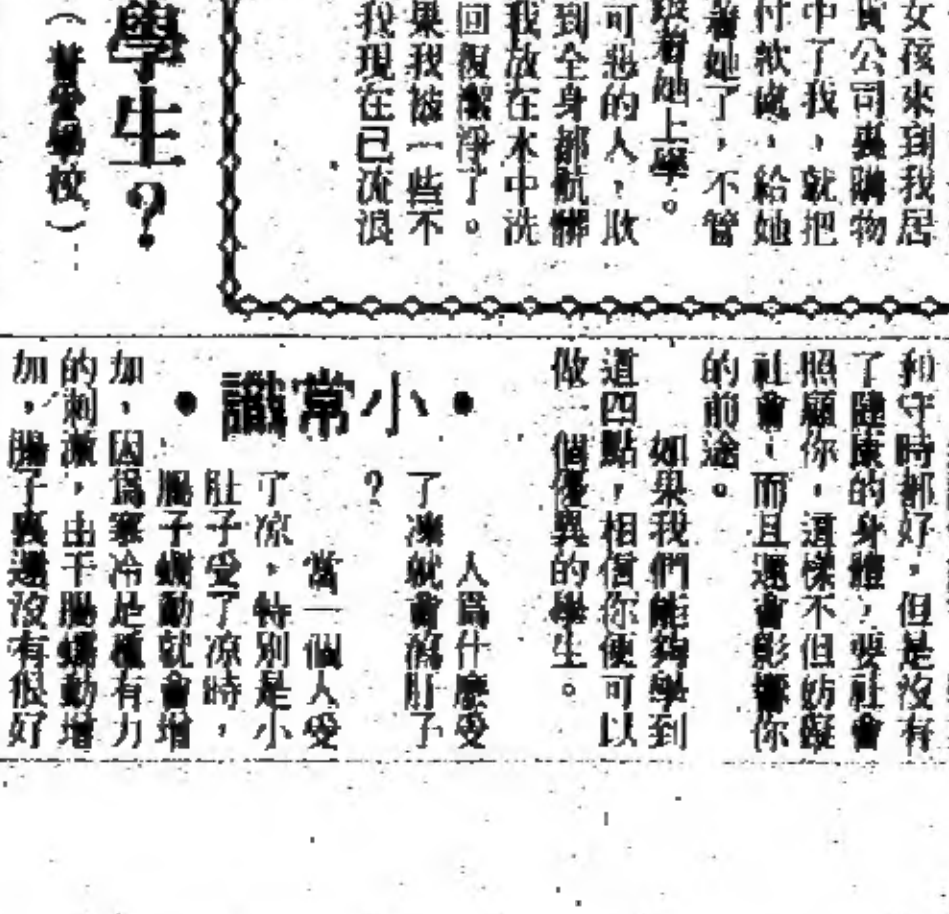 女孩來到我居
貨公司裏購物
中了我，就把
付欵處，給她
着她了，不管
跟着她上學。
可惡的人，欺
到全身都骯髒
我放在水中洗
回復潔淨了。
果我被一些不
我現在已流浪
學生？
學校）
和守時都好，但是沒有
了健康的身體，要社會
照顧你，這樣不但妨礙
社會，而且還會影響你
的前途。
如果我們能夠學到
道四點，相信你便可以
做一個優異的學生。
•小常識•
人爲什麼受
了凍就會瀉肚子
？
當一個人受
了凉，特別是小
肚子受了凉時，
腸子蠕動就會增
加，因爲寒冷是種有力
的刺激，由于腸蠕動增
加，腸子裏邊沒有很好